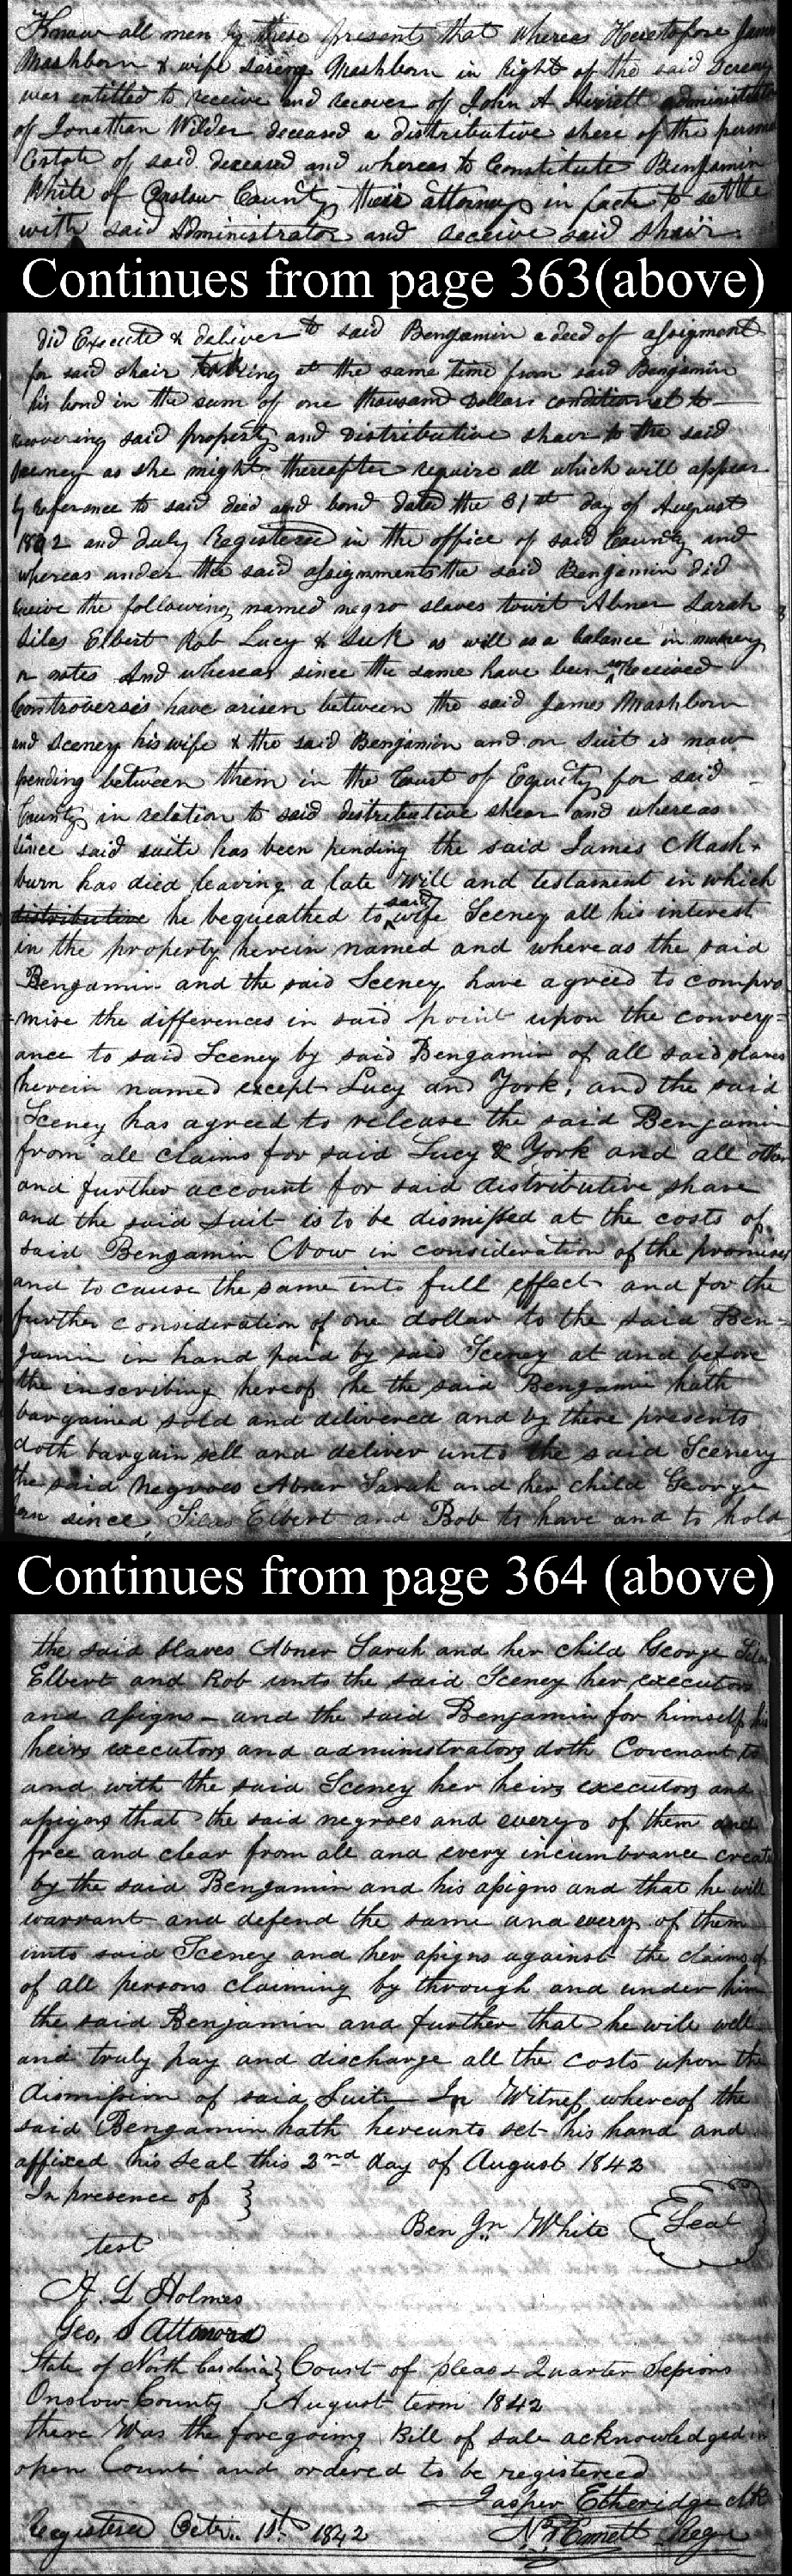 Know all men by these present that whereas Heretofore James
Mashborn & wife sceney Mashborn in right of the said Sceney
was entitled to receive and recover of John A Averett administrator
of Jonathan Wilder deceased a distributive shere of the personal
Estate of said deceased and whereas to Constitute Benjamin
White of Onslow County their attorney in fact to settle
with said Administrator and receive said shair
Continues from page 363(above)
did Execute & deliver to said Benjamin a deed of assigment
for said shair taking at the same time from said Benjamin
his bond in the sum of one thousand Dollars conditional to
recovering said property and distributive shair to the said
Sceney as she might thereafter require all which will appear
by referance to said deed and bond dated the 31st day of August
and duly Registered in the office of said County and
whereas under the said assignments the said Benjamin did
receive the following named negro slaves towit Abner Sarah
Silas Elbert Rob Lucy & as will as a balance in money
or notes And whereas since the same have been so Received
Controversis have arisen between the said James Mashborn
and Sceney his wife & the said Benjamin and on Suit is now
pending between them in the Court of Equity for said
County in relation to said distributive shear and whereas
since said suite has been pending the said James Mash-
burn has died leaving a late Will and testament in which
distributive he bequeathed to said wife Sceney all his interest
in the property herein named and whereas the said
Benjamin and the said Sceney have agreed to compro
=mise the differences in said point upon the convey=
ance to said Sceney by said Benjamin of all said slaves
herein named except Lucy and York, and the said
Sceney has agreed to release the said Benjamin
from all claims for said Lucy & York and all other
and further account for said distributive share
and the said Suit is to be dismissed at the costs of
said Benjamin Now in consideration of the promises
and to cause the same into full effect and for the
further consideration of one dollar to the said Ben=
jamin in hand paid by said Sceney at and before
the inscribing hereof he the said Benjamin hath
bargained sold and delivered and by these presents
doth bargain sell and deliver unto the said Scenery
the said Negroes Abner Sarah and her child George
born since, Silas Elbert and Bob to have and to hold
Continues from page 364 (above)
the said slaves Abner Sarah and her child George Silas
Elbert and Rob unto the said Sceney her executors
and assigns - and the said Benjamin for himself his
heirs executors and administrators doth Covenant to
and with the said Sceney her heirs executors and
assigns that the said negroes and every of them and
free and clear from all and every incumbrance created
by the said Benjamin and his assigns and that he will
warrant and defend the same and every of them
unto said Sceney and her assigns against the claims of
of all persons claiming by through and under him
the said Benjamin and further that he will well
and truly pay and discharge all the costs upon the
dismission of said Suit In Witness whereof the
said Benjamin hath hereunto set his hand and
affixed his seal this 2nd day of August 1842
In presence of }
Ben Jn White Seal
test
A. L Holmes
Geo, S Attmore
State of North Carolina } Court of pleas & Quarter Sessions
Onslow County } August term 1842
there Was the foregoing Bill of sale acknowledged in
open Court and ordered to be registered
Jasper Etheridge clk
Registered Octr. 1st 1842 Regr